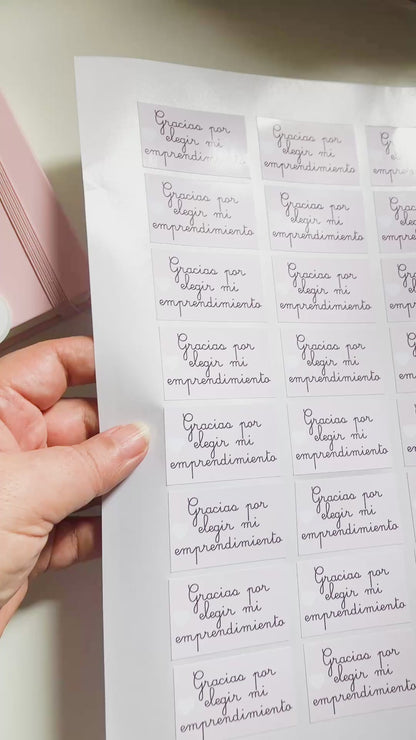 Gracias por
elegir mi
emprendimiento
Gracias por
elegir mi
emprendimiento
Gracias
Gracias por
elegir mi
emprendimiento
Gracias por
elegir mi
emprendimiento
Gracias por
elegir mi
emprendimiento
Gracias por
elegir mi
emprendimiento
Gracias por
elegir mi
emprendimiento
Gracias por
elegir mi
emprendimiento
Gracias por
elegir mi
emprendimiento
Gracias por
elegir mi
emprendimiento
Gracias por
elegir mi
emprendimiento
Gracias por
elegir mi
emprendimiento
Gracias por
elegir mi
emprendimiento
Gracias por
elegir mi
emprendimiento
Gracias por
elegir mi
emprendimiento
Gracias por
elegir mi
emprendimiento